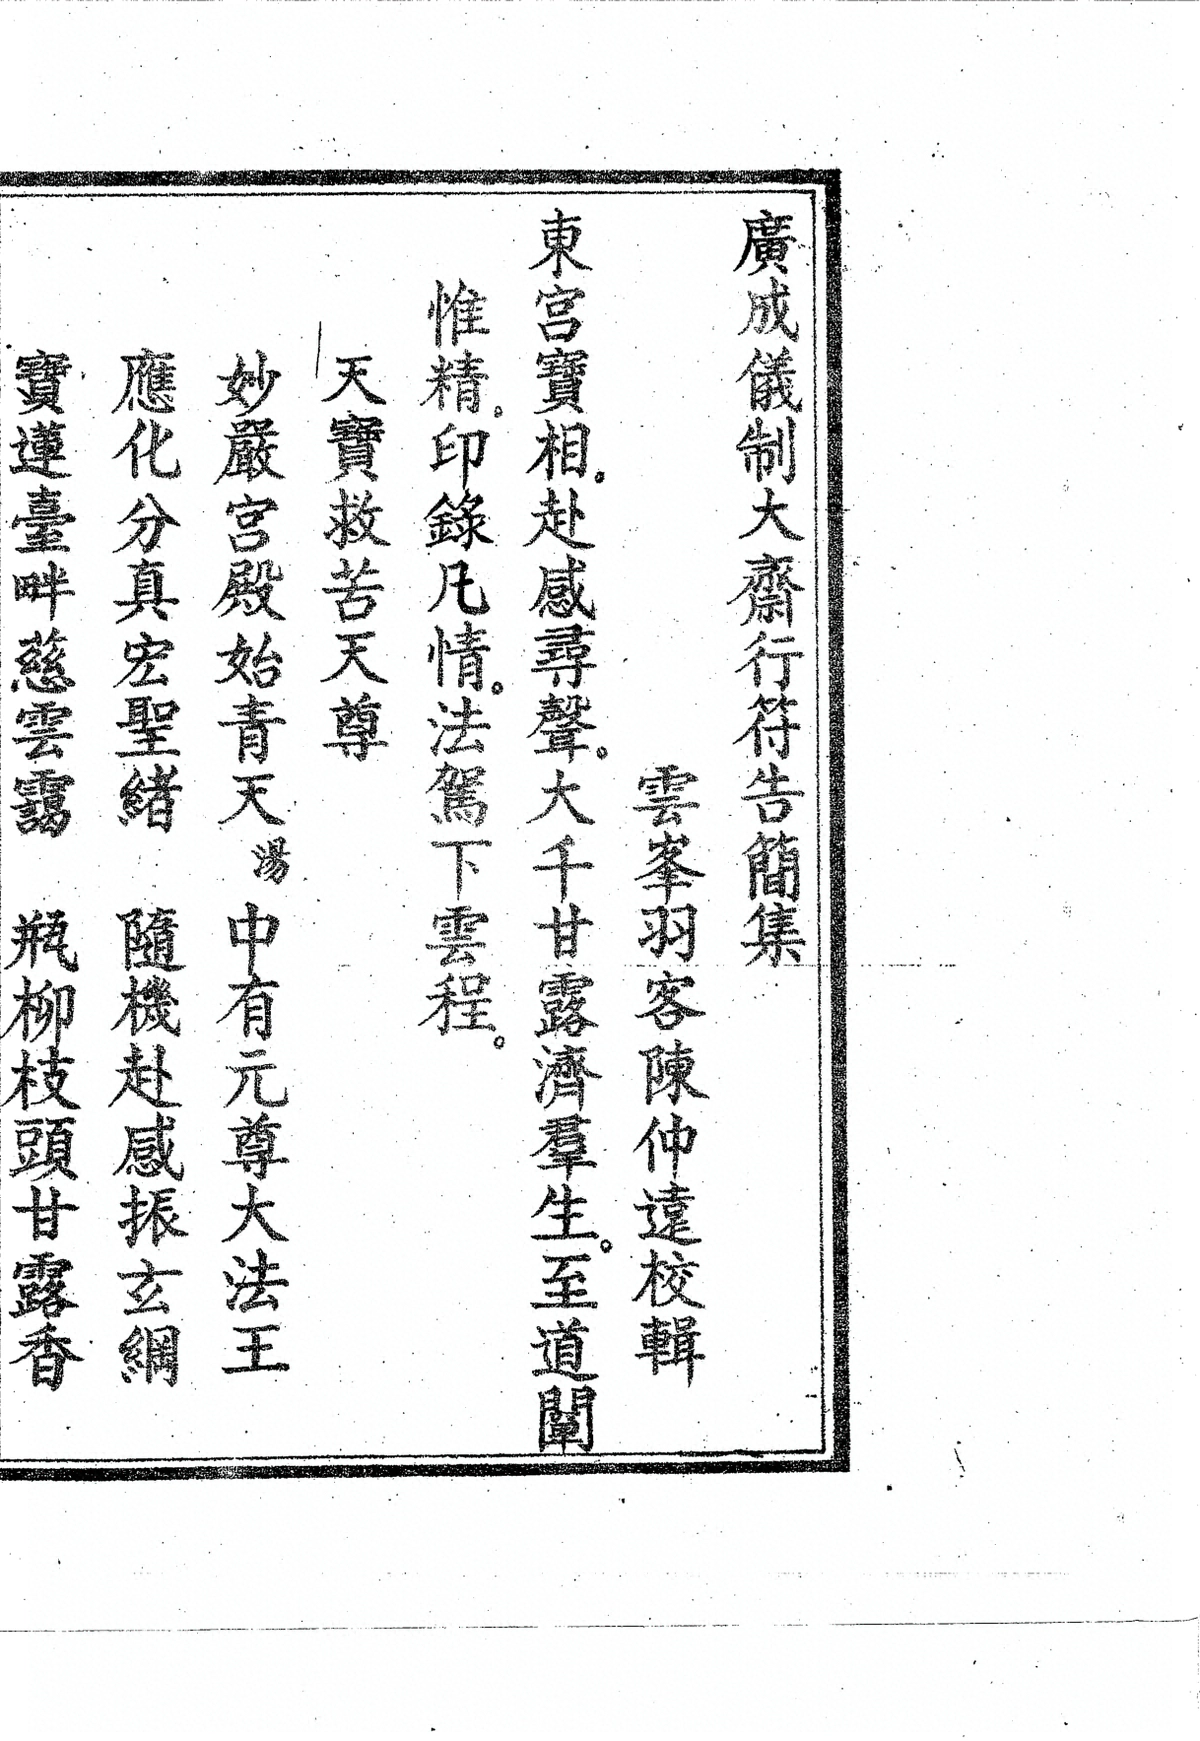 廣成儀制大齋行符告簡集
雲峯羽客陳仲遠校輯
東宮寶相。赴感尋聲。大千甘露濟羣生。至道闡
惟精。印錄凡情。法駕下雲程。
天寶救苦天尊
妙嚴宮殿始青天 湯 中有元尊大法王
應化分真宏聖緒 隨機赴感振玄綱
寶蓮臺畔慈雲靄 瓶柳枝頭甘露香